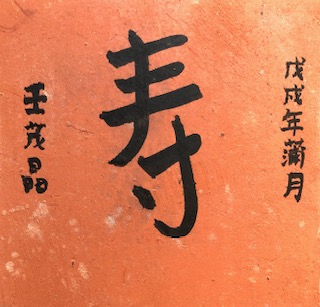 戊戌年蒲月
寿
王茂晶